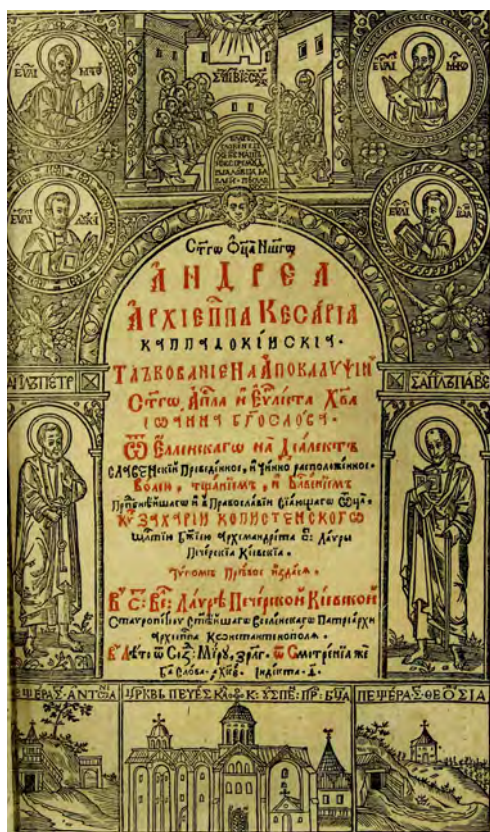 Ст҃гѡ Ѻц҃а Нш҃гѡ
АНДРЕА
АРХІЕПП҃А КЕСАРІА
КАППАДОКІИСКІА.
ТЛЪКОВАНІЕ НА АПОКАЛѴѰІН
Ст҃гѡ, Ап҃ла и Еѵ҃ліста Хв҃а
ІѠАННА БГ҃ОСЛОВА.
Ѿ Елленскагѡ на Діалектъ
СЛАВЕНскій Преведенное, и чинно расположенное.
Волею, тщаніемъ, и Блв҃еніемъ
в Православіи сіающагѡ Ѿца.
Кѵ҃ ЗАХАРІИ КОПИСТЕНСКОГѠ
Мл҃тію Бж҃ією Архимандріта с҃: Лаѵры
Печерскіа Кіевскіа.
Тѵпомъ Първое издася.
В С҃: Ве҃: Лаѵрѣ Печерской Кіевской
Ставропігіон Ст҃ѣйшагѡ Вселенскагѡ Патріархи
Архіепп҃а Кѡнстантінополѧ.
В Лѣто ѿ Сѡз: Міру, ҂зрлг. ѿ Смотреніѧ же
Ба Слова. ҂ахке. Індікта. І.
ПЕЩЕРА С: АНТѠНІА
ЦР҃КВЬ ПЕЧЕРСКАѦ УСПЕ: ПР: БЦ҃А
ПЕЩЕРА С: ѲЕОСІА